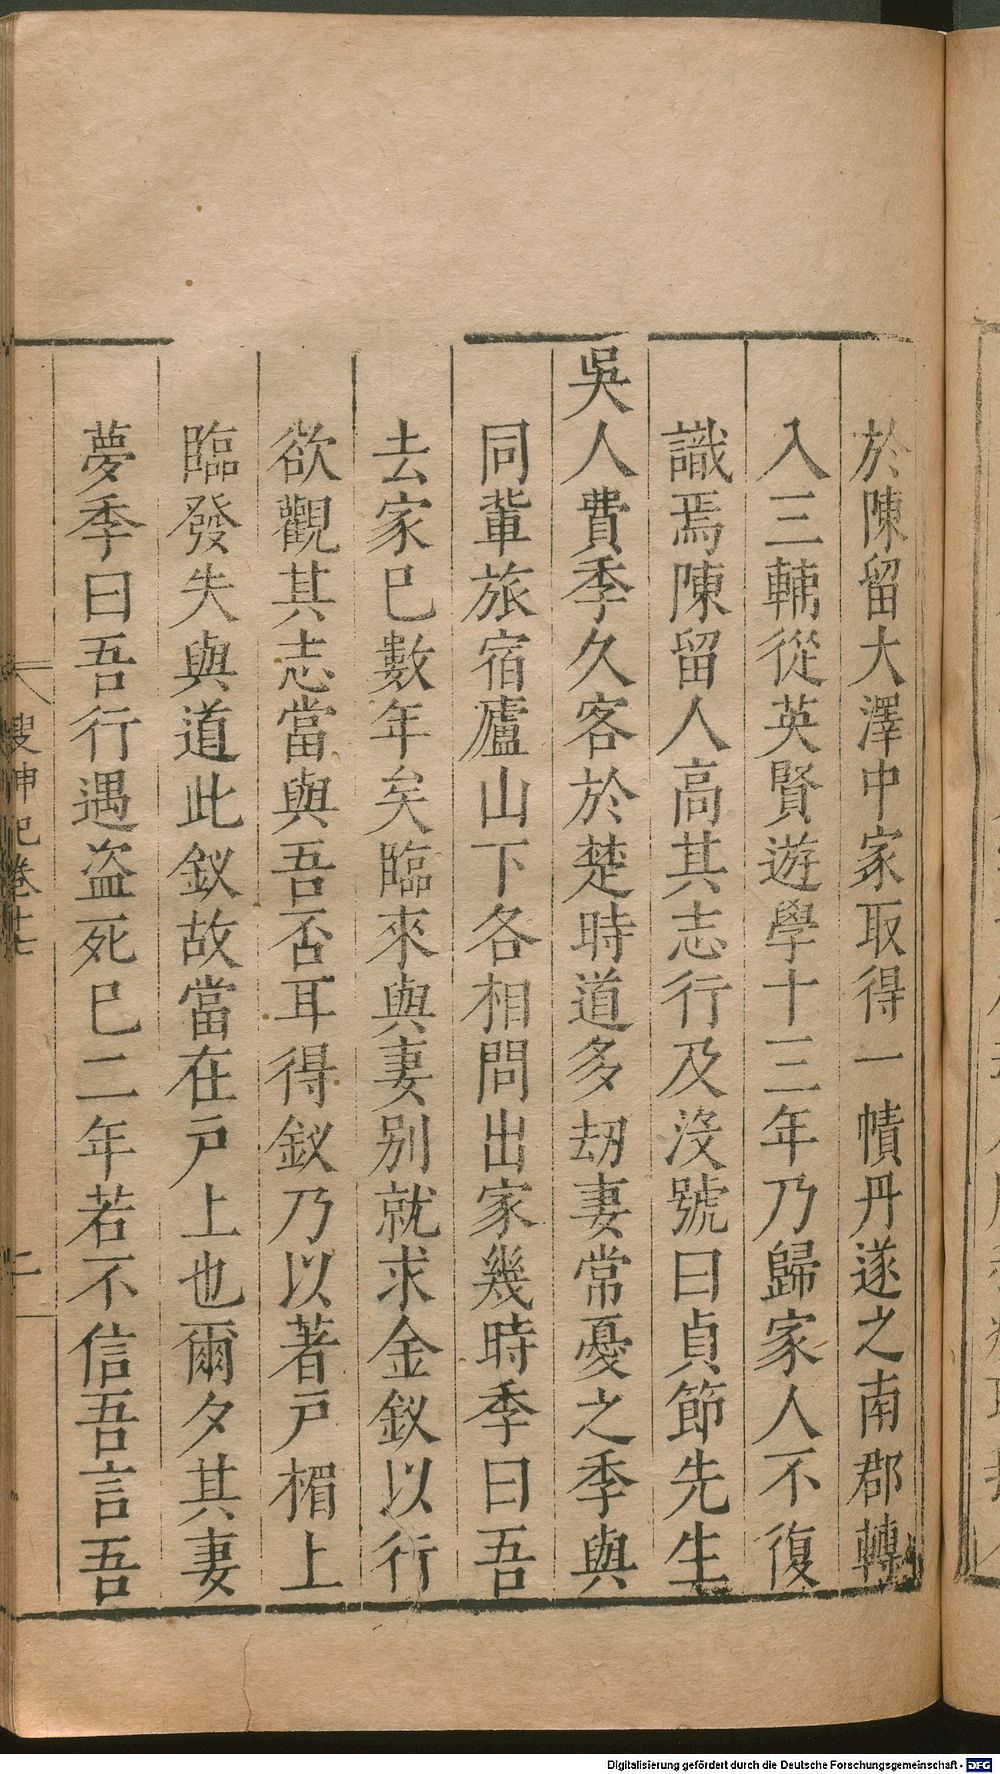 於陳留大澤中家取得一幘丹遂之南郡轉
入三輔從英賢遊學十三年乃歸家人不復
識焉陳留人高其志行及沒號曰貞節先生
吳人費季久客於楚時道多刼妻常憂之季與
同輩旅宿廬山下各相問出家幾時季曰吾
去家巳數年矣臨來與妻別就求金釵以行
欲觀其志當與吾否耳得釵乃以著戸楣上
臨發失與道此釵故當在戸上也爾夕其妻
夢季曰吾行遇盗死巳二年若不信吾言吾
搜神記卷十七
二
Digitalisierung gefördert durch die Deutsche Forschungsgemeinschaft - DFG